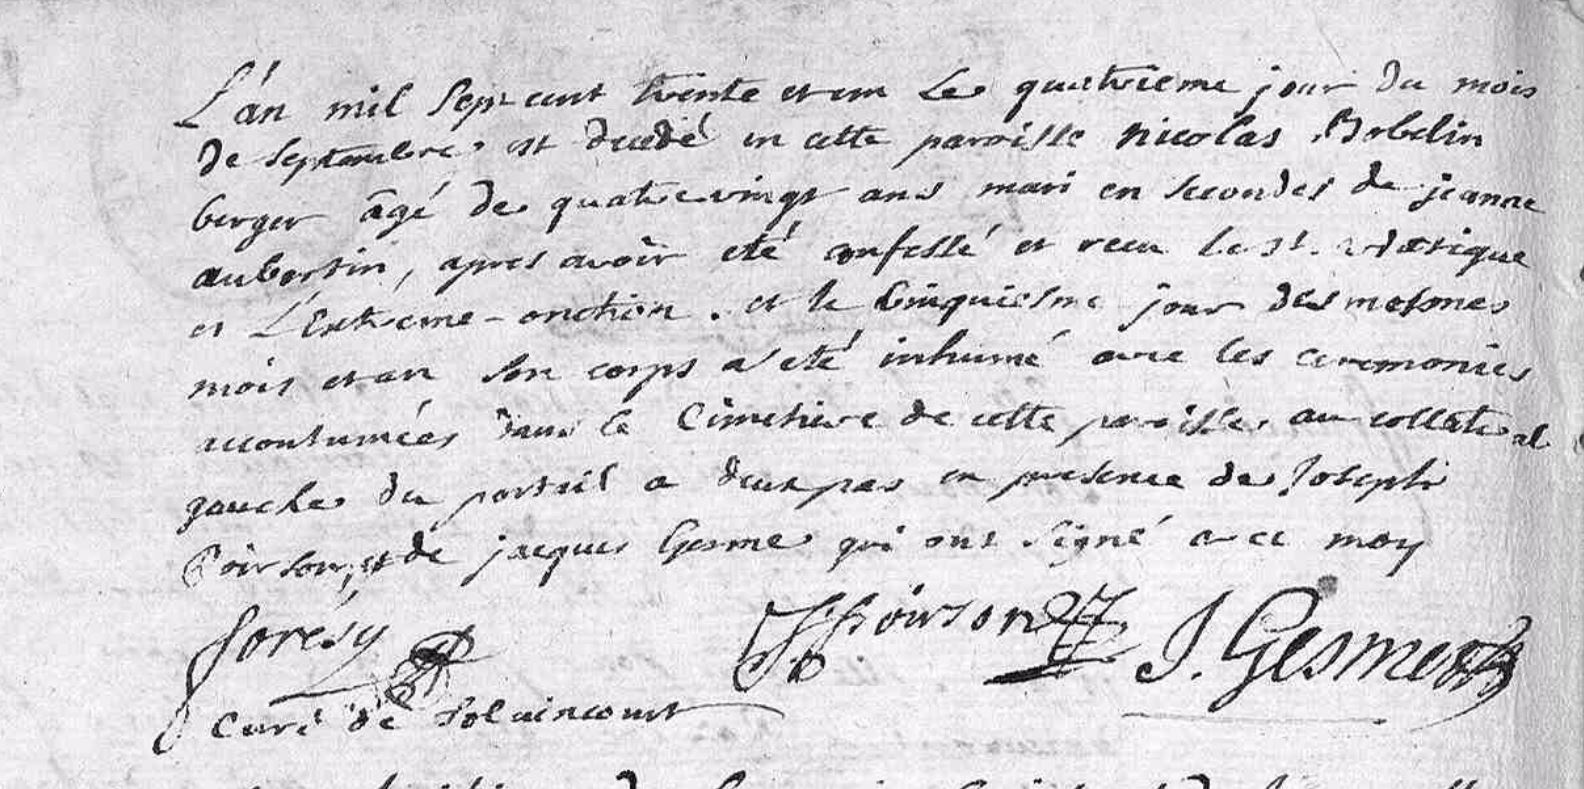 L'an mil sept cent trente et un le quatrieme jour du mois
de septembre est decedé en cette paroisse nicolas Mobelin
berger âgé de quatrevingt ans mari en secondes de jeanne
aubertin, apres avoir eté confessé et receu le st. viatique
et l'Extreme-onction. et le cinquiesme jour des mesmes
mois et an son corps a eté inhumé avec les ceremonies
accoutumées dans le Cimetiere de cette paroisse au collateral
gauche du portail a deux pas en presence de Joseph
Poirson, et de jacques Gesme qui ont signé avec moy
J. Poirson J. Gesme
Curé de Solaincourt